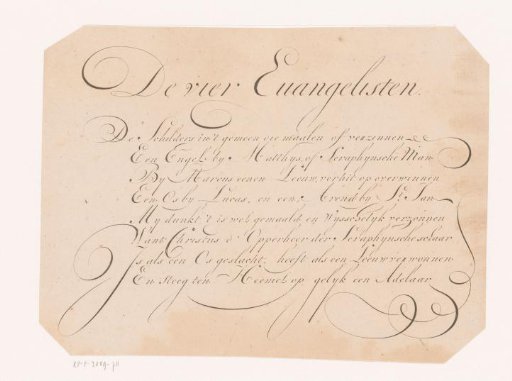 De vier Euangelisten.
De Schilders in't gemeen die maalen of verzinnen
Een Engel by Matthys of Seraphynsche Man
By Marcus eenen Leeuw, verhit op overwinnen
Een Os by Lucas, en eenen Arend by St. Jan
My dunkt 't is wel gemaald, en wysselyk verzonnen
Want Christus d' Opperheer der Seraphynsche schaar
Is als een Os geslacht, heeft als een Leeuw verwonnen
En steeg ten Hemel op gelyk een Adelaar